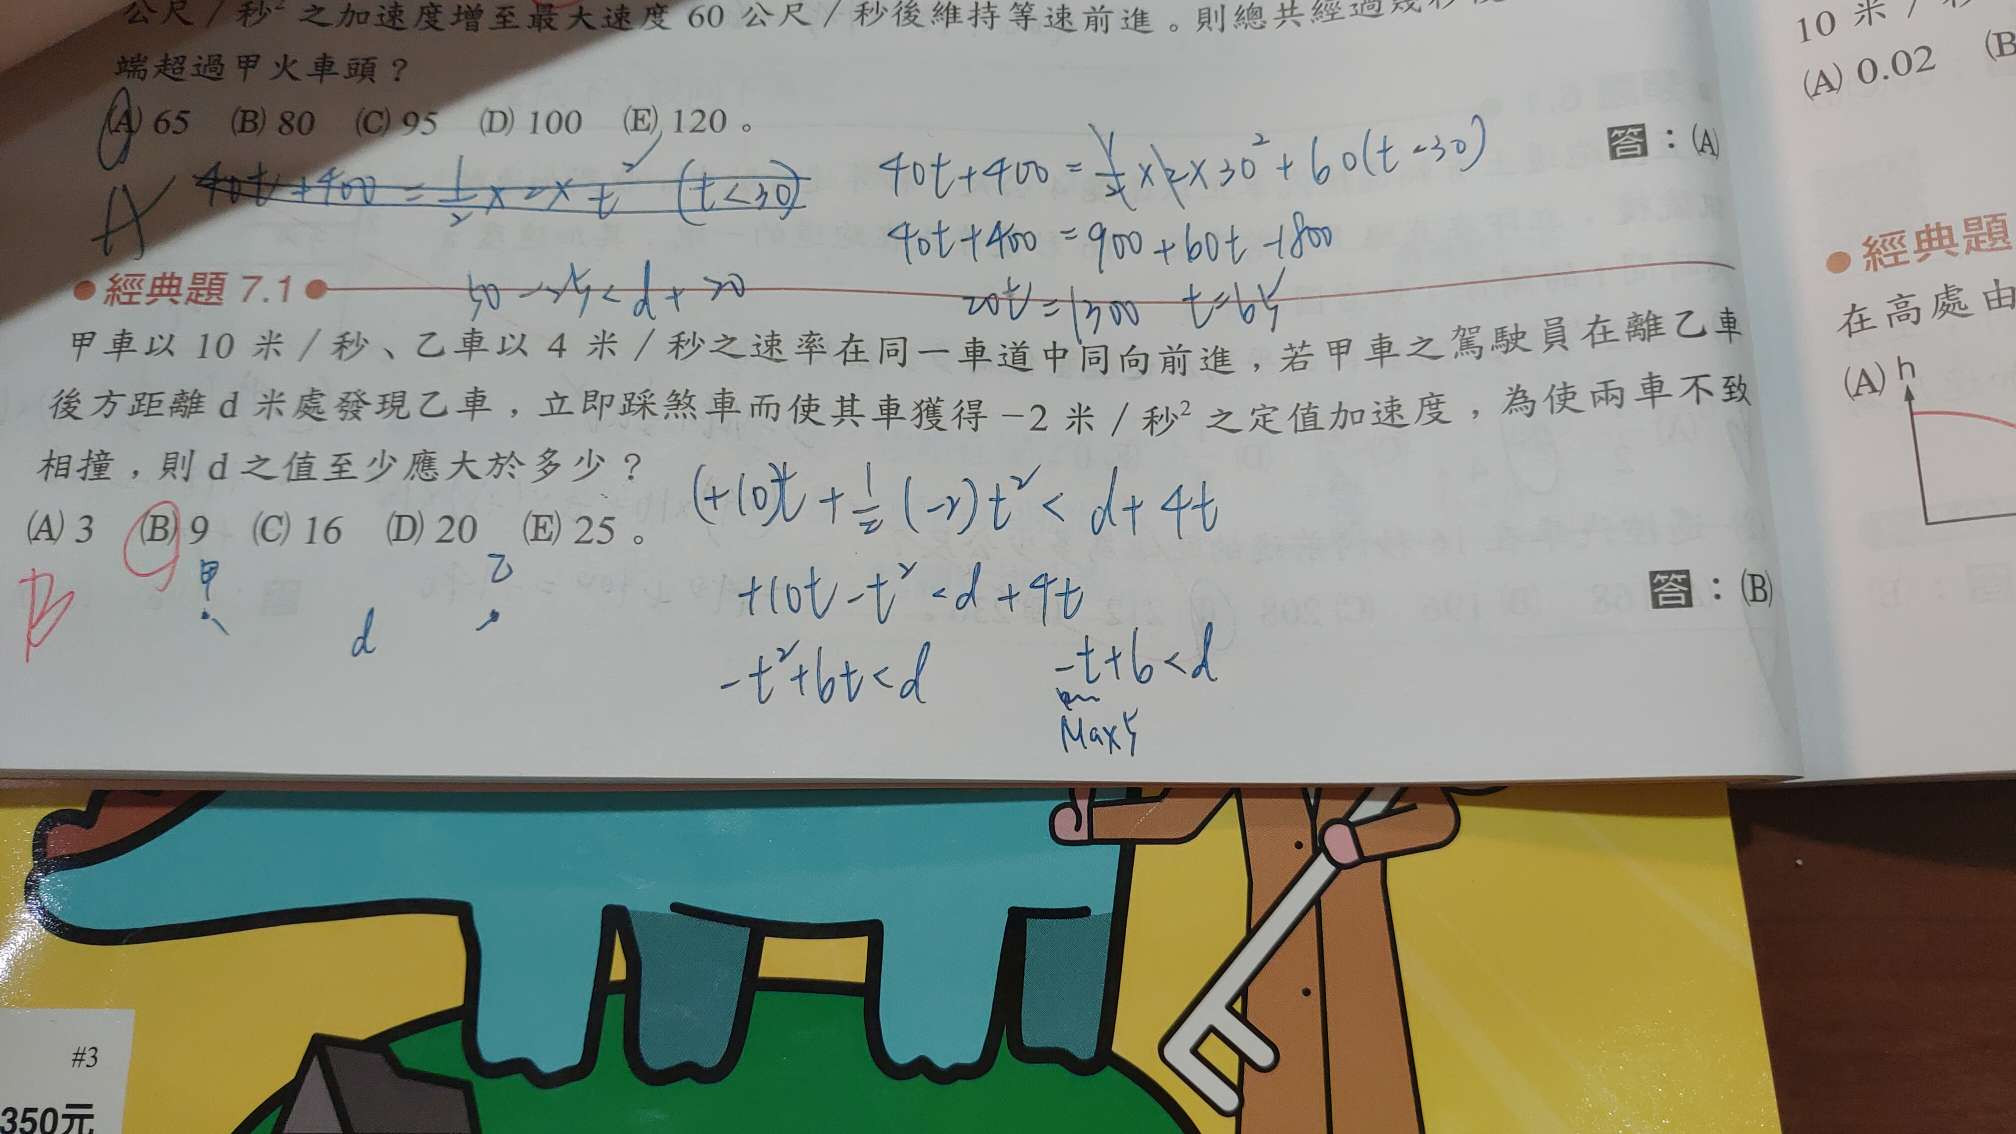 公尺／秒² 之加速度增至最大速度 60 公尺／秒後維持等速前進。則總共經過幾秒
端超過甲火車頭？
(A) 65 (B) 80 (C) 95 (D) 100 (E) 120。
答：(A)
40t+400=1/2×2×t² (t<30)
40t+400=1/2×2×30²+60(t-30)
A
40t+400=900+60t-1800
20t=1300 t=65
50-25<d+20
經典題 7.1
甲車以 10 米／秒、乙車以 4 米／秒之速率在同一車道中同向前進，若甲車之駕駛員在離乙車
後方距離 d 米處發現乙車，立即踩煞車而使其車獲得 −2 米／秒² 之定值加速度，為使兩車不致
相撞，則 d 之值至少應大於多少？
(A) 3 (B) 9 (C) 16 (D) 20 (E) 25。
答：(B)
(+10)t+1/2(-2)t²<d+4t
B
甲 乙
d
+10t-t²<d+4t
-t²+6t<d
-t+6<d
Max5
10 米／
(A) 0.02 (B
經典題
在高處由
(A) h
#3
350元